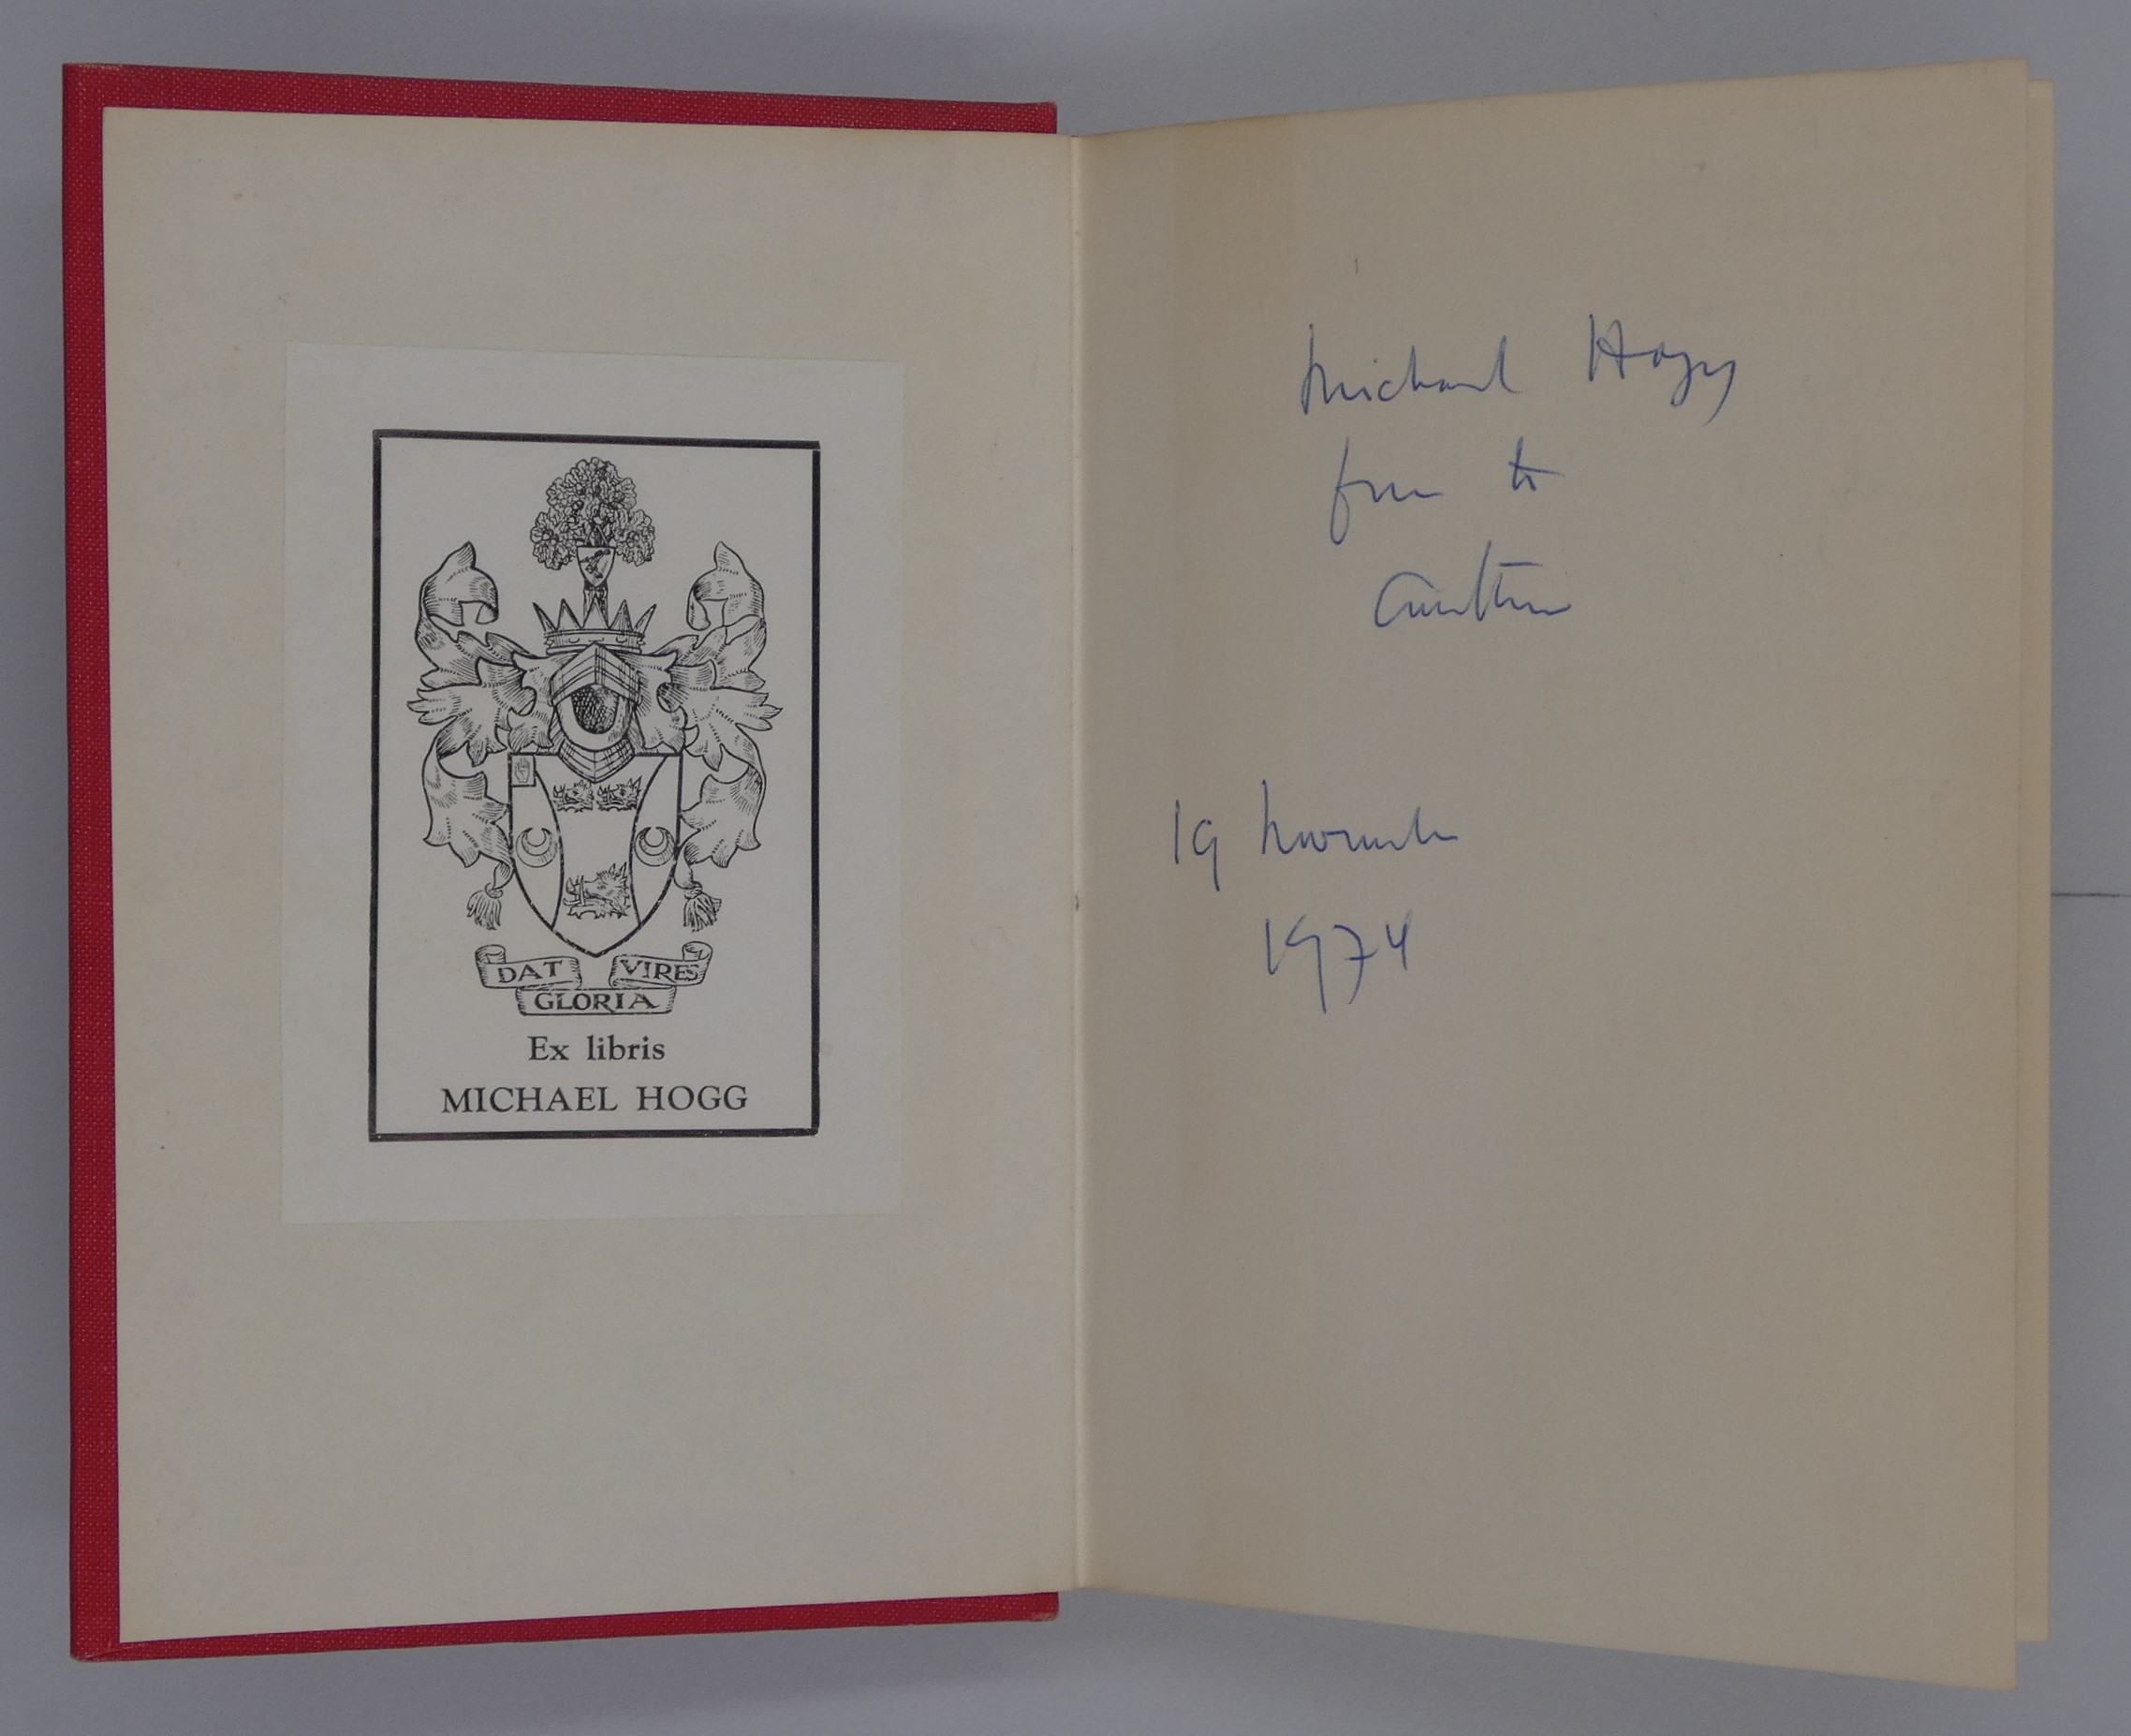 DAT VIRES
GLORIA
Ex libris
MICHAEL HOGG
Michael Hogg
from the
author
19 November
1974